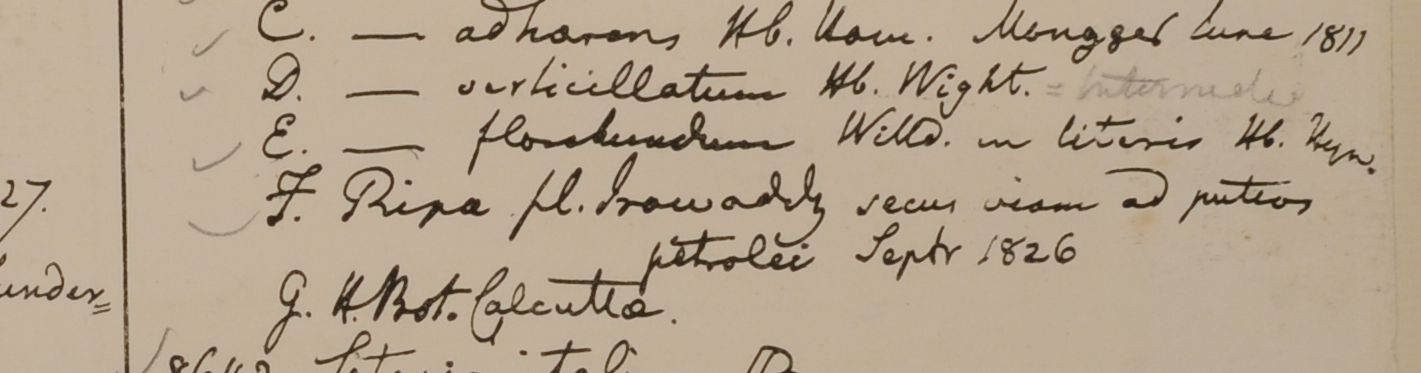 C. — adhærens Hb. Ham. Mongger June 1811
D. — verticillatum Hb. Wight. = Intermedia
E. — floribundum Willd. in literis Hb. Heyn.
27.
F. Ripa fl. Irawaddy secus viam ad puteos
petrolei Septr 1826
under=
G. H. Bot. Calcutta.